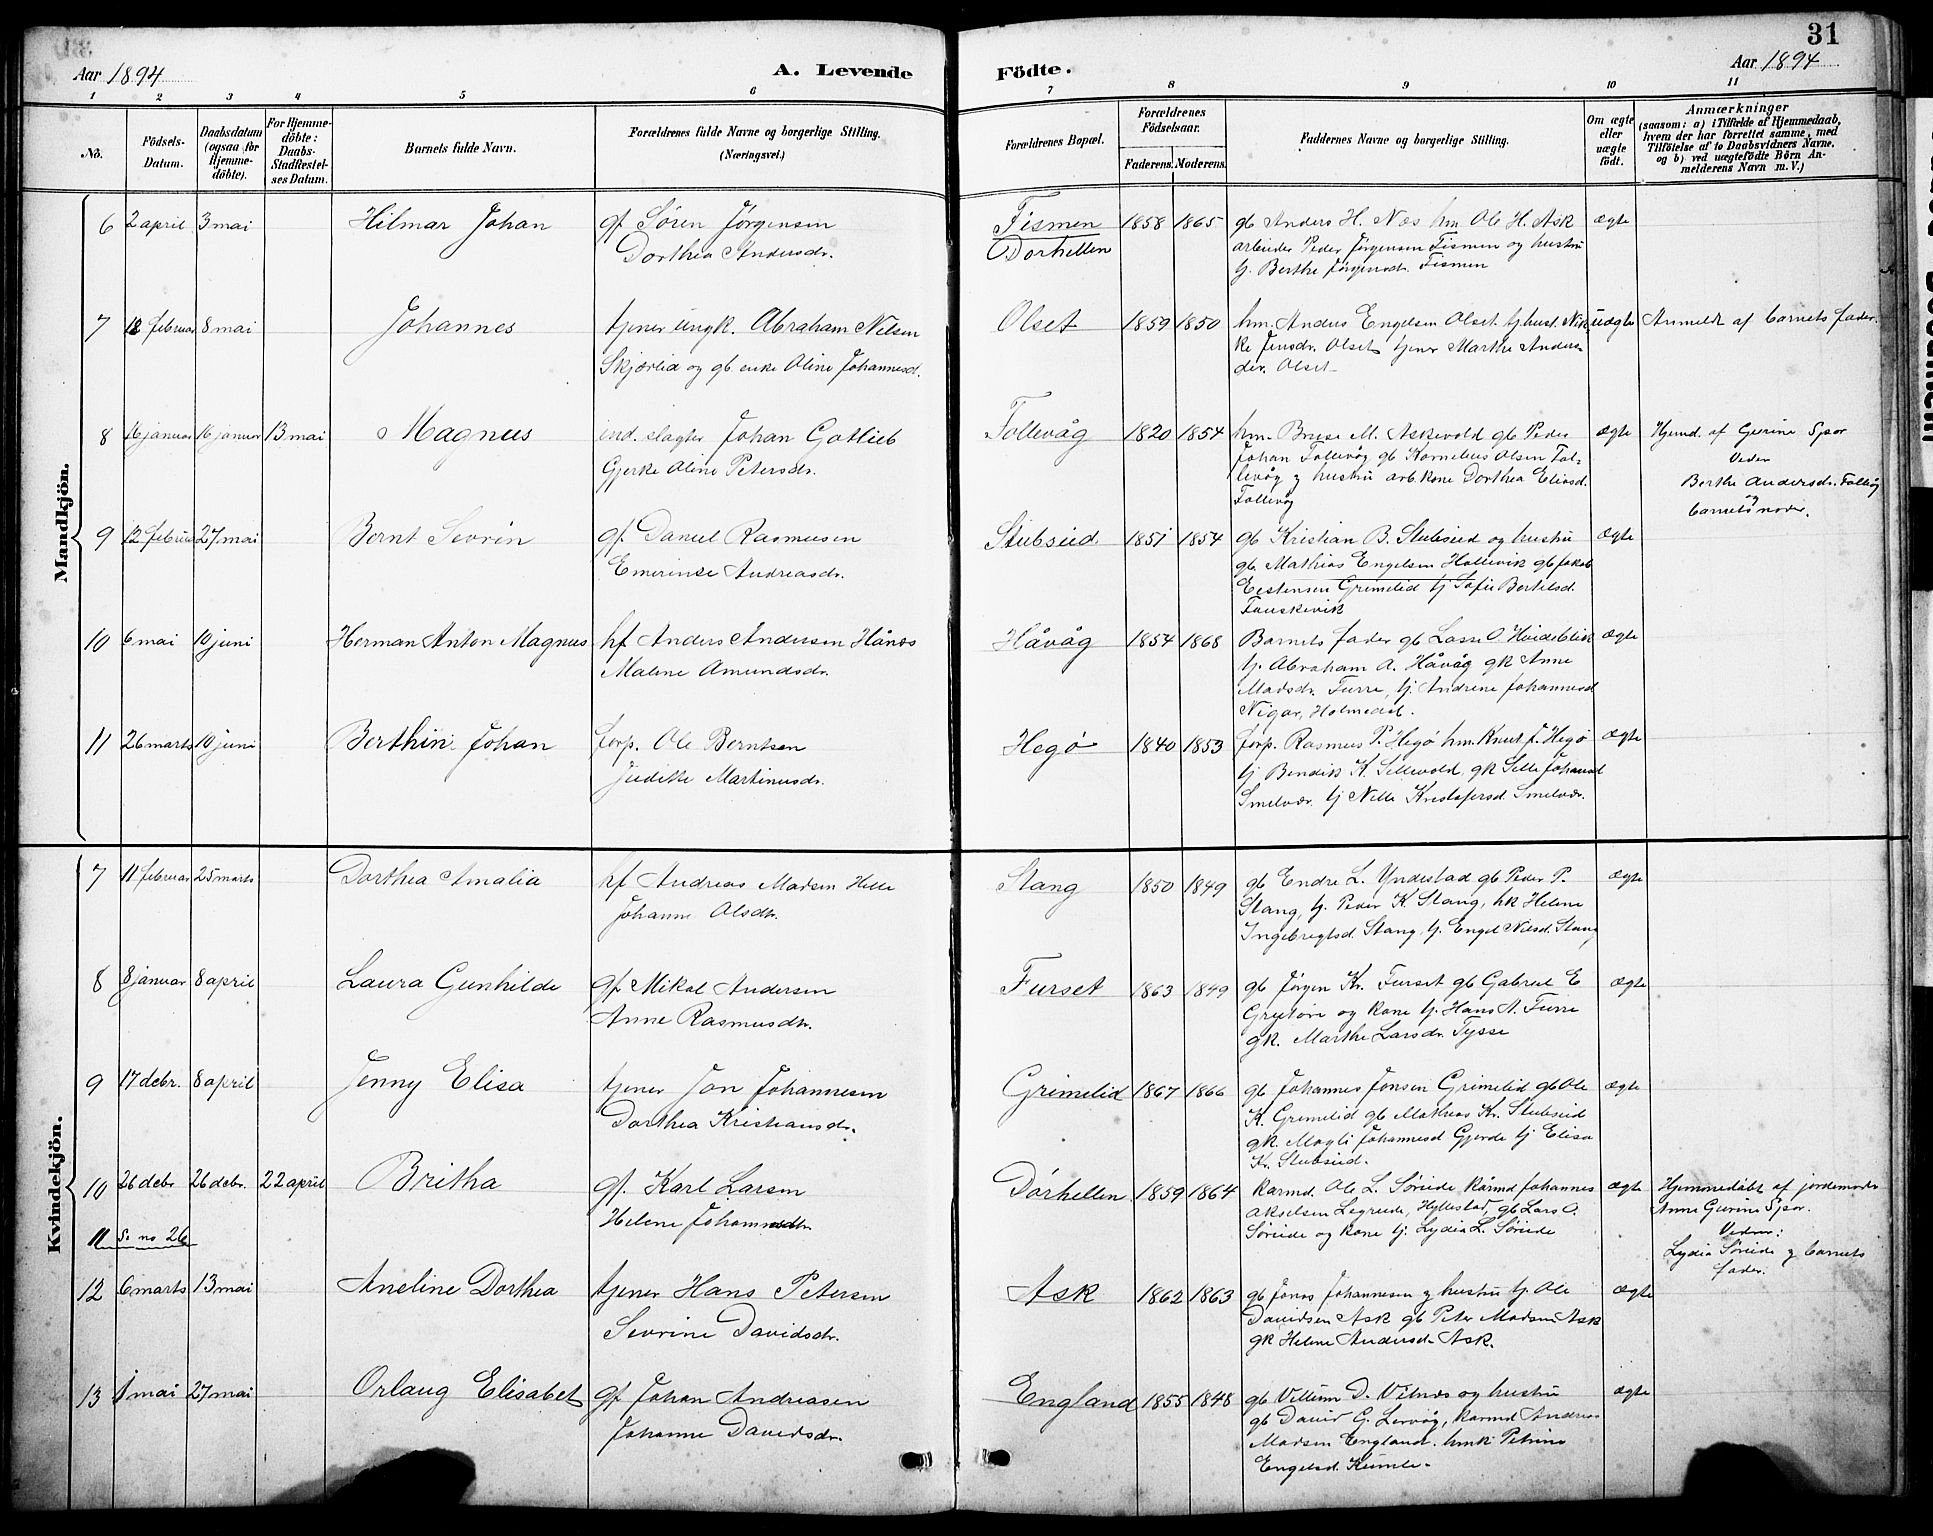 31
Aar 1894
A. Levende
Födte.
Aar 1894
1 2 3 4 5 6 7 8 9 10 11
No.
Födsels-
Datum.
Daabsdatum
(ogsaa for
Hjemme-
döbte).
For Hjemme-
döbte:
Daabs-
Stadfestel-
ses Datum.
Barnets fulde Navn.
Forældrenes fulde Navne og borgerlige Stilling.
(Næringsvei.)
Forældrenes Bopæl.
Forældrenes
Födselsaar.
Faderens. Moderens.
Faddernes Navne og borgerlige Stilling.
Om ægte
eller
uægte
födt.
Anmærkninger
(saasom: a) i Tilfælde af Hjemmedaab,
hvem der har forrettet samme, med
Tilföielse af to Daabsvidners Navne,
og b) ved uægtefödte Börn An-
melderens Navn m. V.)
Mandkjön.
6 2 april 3 mai Hilmar Johan gf Sören Jörgensen
Dorthea Andersdr.
Tismen
Dörhellen
1858 1865
gb Anders H. Næs hm Ole H. Ask
arbeider Peder Jörgensen Tismen og hustru
tj. Berthe Jörgensdr. Tismen
ægte
7 12 februar 8 mai Johannes tjener ungk. Abraham Nilsen
Skjærlia og gb. enke Oline Johannesd.
Olset 1859 1850
hm. Anders Engelsen Olset tj hust. Nik-
ke Jensdr. Olset tjener Marthe Anders-
dtr. Olset
uægte
Anmeldt af barnets fader.
8 16 januar 16 januar 13 mai Magnus ind. slagter Johan Gotlieb
Gjerke Oline Petersdr.
Follevåg 1820 1854
hm. Bruse M. Askevold gb Peder
Johan Follevåg gb Kornelius Olsen Fol-
levåg og hustru arb. kone Dorthea Eliasd.
Follevåg
ægte
Hjemd. af Gurine Spor
Veder
Berthe Andersdr. Follevåg
og
barnets moder.
9 12 februar 27 mai Bernt Sevrin gf Daniel Rasmusen
Emerinse Andreasdr.
Stubseid 1851 1854
gb Kristian B. Stubseid og hustru
gb. Mathias Engelsen Hollevik gb Jakob
Eistensen Grimelid tj Sofie Bertelsd.
Fauskevik
ægte
10 6 mai 10 juni Herman Anton Magnus hf Anders Andersen Hånes
Malene Amundsdr.
Håvåg 1854 1868
Barnets fader gb Lasse O. Hvideblik
tj. Abraham A. Håvåg gk Anne
Madsdr. Furre, tj. Andrine Johannesd
Nigar, Holmedal.
ægte
11 26 marts 10 juni Berthin Johan forp. Ole Berntsen
Judithe Martinusdr.
Hegö 1840 1853
forp. Rasmus P. Hegö hm. Knut J. Hegö
tj Bendik K. Sellevold gk Sille Johansd
Smelvær. tj Nille Kristofersd. Smelvær.
ægte
Kvindekjön.
7 11 februar 25 marts Dorthea Amalia hf Andreas Madsen Helle
Johanne Olsdtr.
Stang 1850 1849
gb Endre L. Yndestad gb Peder P.
Stang, tj. Peder K. Stang, hk Helene
Ingebregtsd. Stang, tj. Engel Nilsd. Stang
ægte
8 8 januar 8 april Laura Gunhilde gf Mikal Andersen
Anne Rasmusdtr.
Furset 1863 1849
gb Jörgen Kr. Furset gb Gabriel E
Grytöre og kone tj. Hans A. Furre
gk. Marthe Larsdr. Tysse
ægte
9 17 debr. 8 april Jenny Elisa tjener Jon Johannesen
Dorthea Kristiansdr.
Grimelid 1867 1866
gb Johannes Jonsen Grimelid gb Ole
K. Grimelid gb Mathias Kr. Stubseid
gk. Magli Johannesd Gjerde tj Elisa
Kr. Stubseid.
ægte
10 26 debr 26 debr. 22 april Britha gf. Karl Larsen
Helene Johannesdtr.
Dörhellen 1859 1864
kårmd. Ole L. Söreide kårmd Johannes
Akselsen Legreide, Hyllestad, gb Lars O.
Söreide og kone tj. Lydia L. Söreide
ægte
Hjemmedöbt af jordemoder
Anne Gurine Spor.
Vidner:
Lydia Söreide og barnets
fader.
11 Se no 26
12 6 marts 13 mai Aneline Dorthea tjener Hans Petersen
Sevrine Davidsdr.
Ask 1862 1863
gb Jonas Johannesen og hustru tj. Ole
Davidsen Ask gb Peter Madsen Ask
gk Helene Andersdr. Ask.
ægte
13 1 mai 27 mai Orlaug Elisabet gf Johan Andreasen
Johanne Davidsdr.
England 1855 1848
gb Villum D. Vilnæs og hustru
gb David G. Lervåg, kårmd Andreas
Madsen England. hmk Petrine
Engelsd. Kumle.
ægte